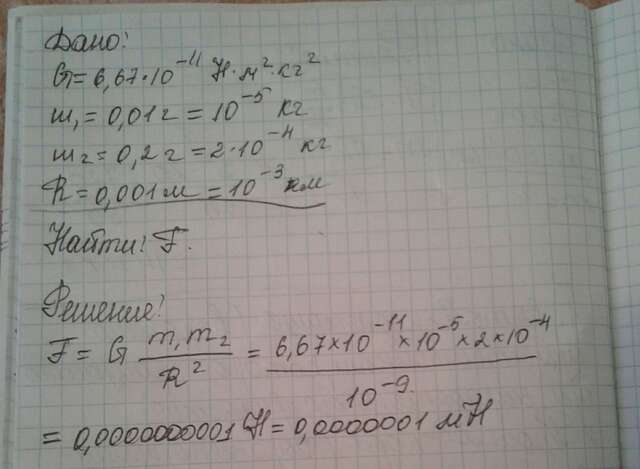 Дано:
G = 6,67·10⁻¹¹ Н·м²·кг²
m₁ = 0,01 г = 10⁻⁵ кг
m₂ = 0,2 г = 2·10⁻⁴ кг
R = 0,001 м = 10⁻³ м
Найти: F.
Решение:
F = G m₁m₂/R² = 6,67×10⁻¹¹×10⁻⁵×2×10⁻⁴/10⁻⁹
= 0,0000000001 Н = 0,0000001 мН